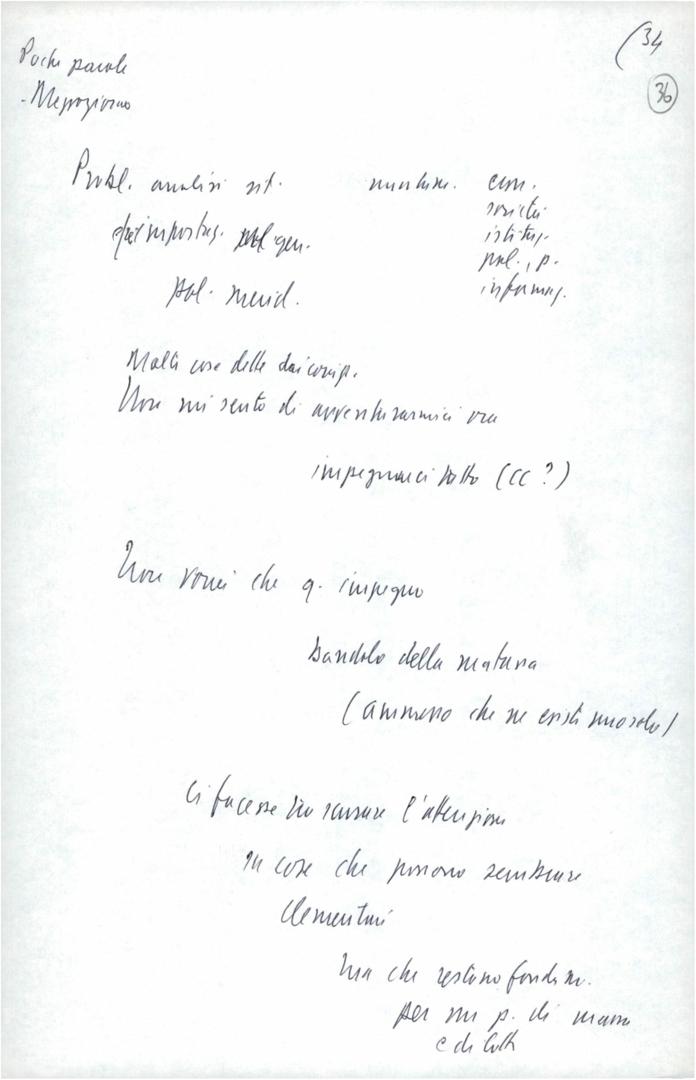 (34
36
Poche parole
- Mezzogiorno
Probl. analisi sit. econ.
società
istituz.
impostaz. pol. gen. pol., p.
pol. merid. informaz.
Molte cose dette dai comp.
Non mi sento di avventurarmici ora
impegnarci tutto (CC?)
Non vorrei che q. impegno
bandolo della matassa
(ammesso che ne esista uno solo)
ci facesse trascurare l'attenzione
su cose che possono sembrare
elementari
ma che restano fondam.
per un p. di massa
e di lotta